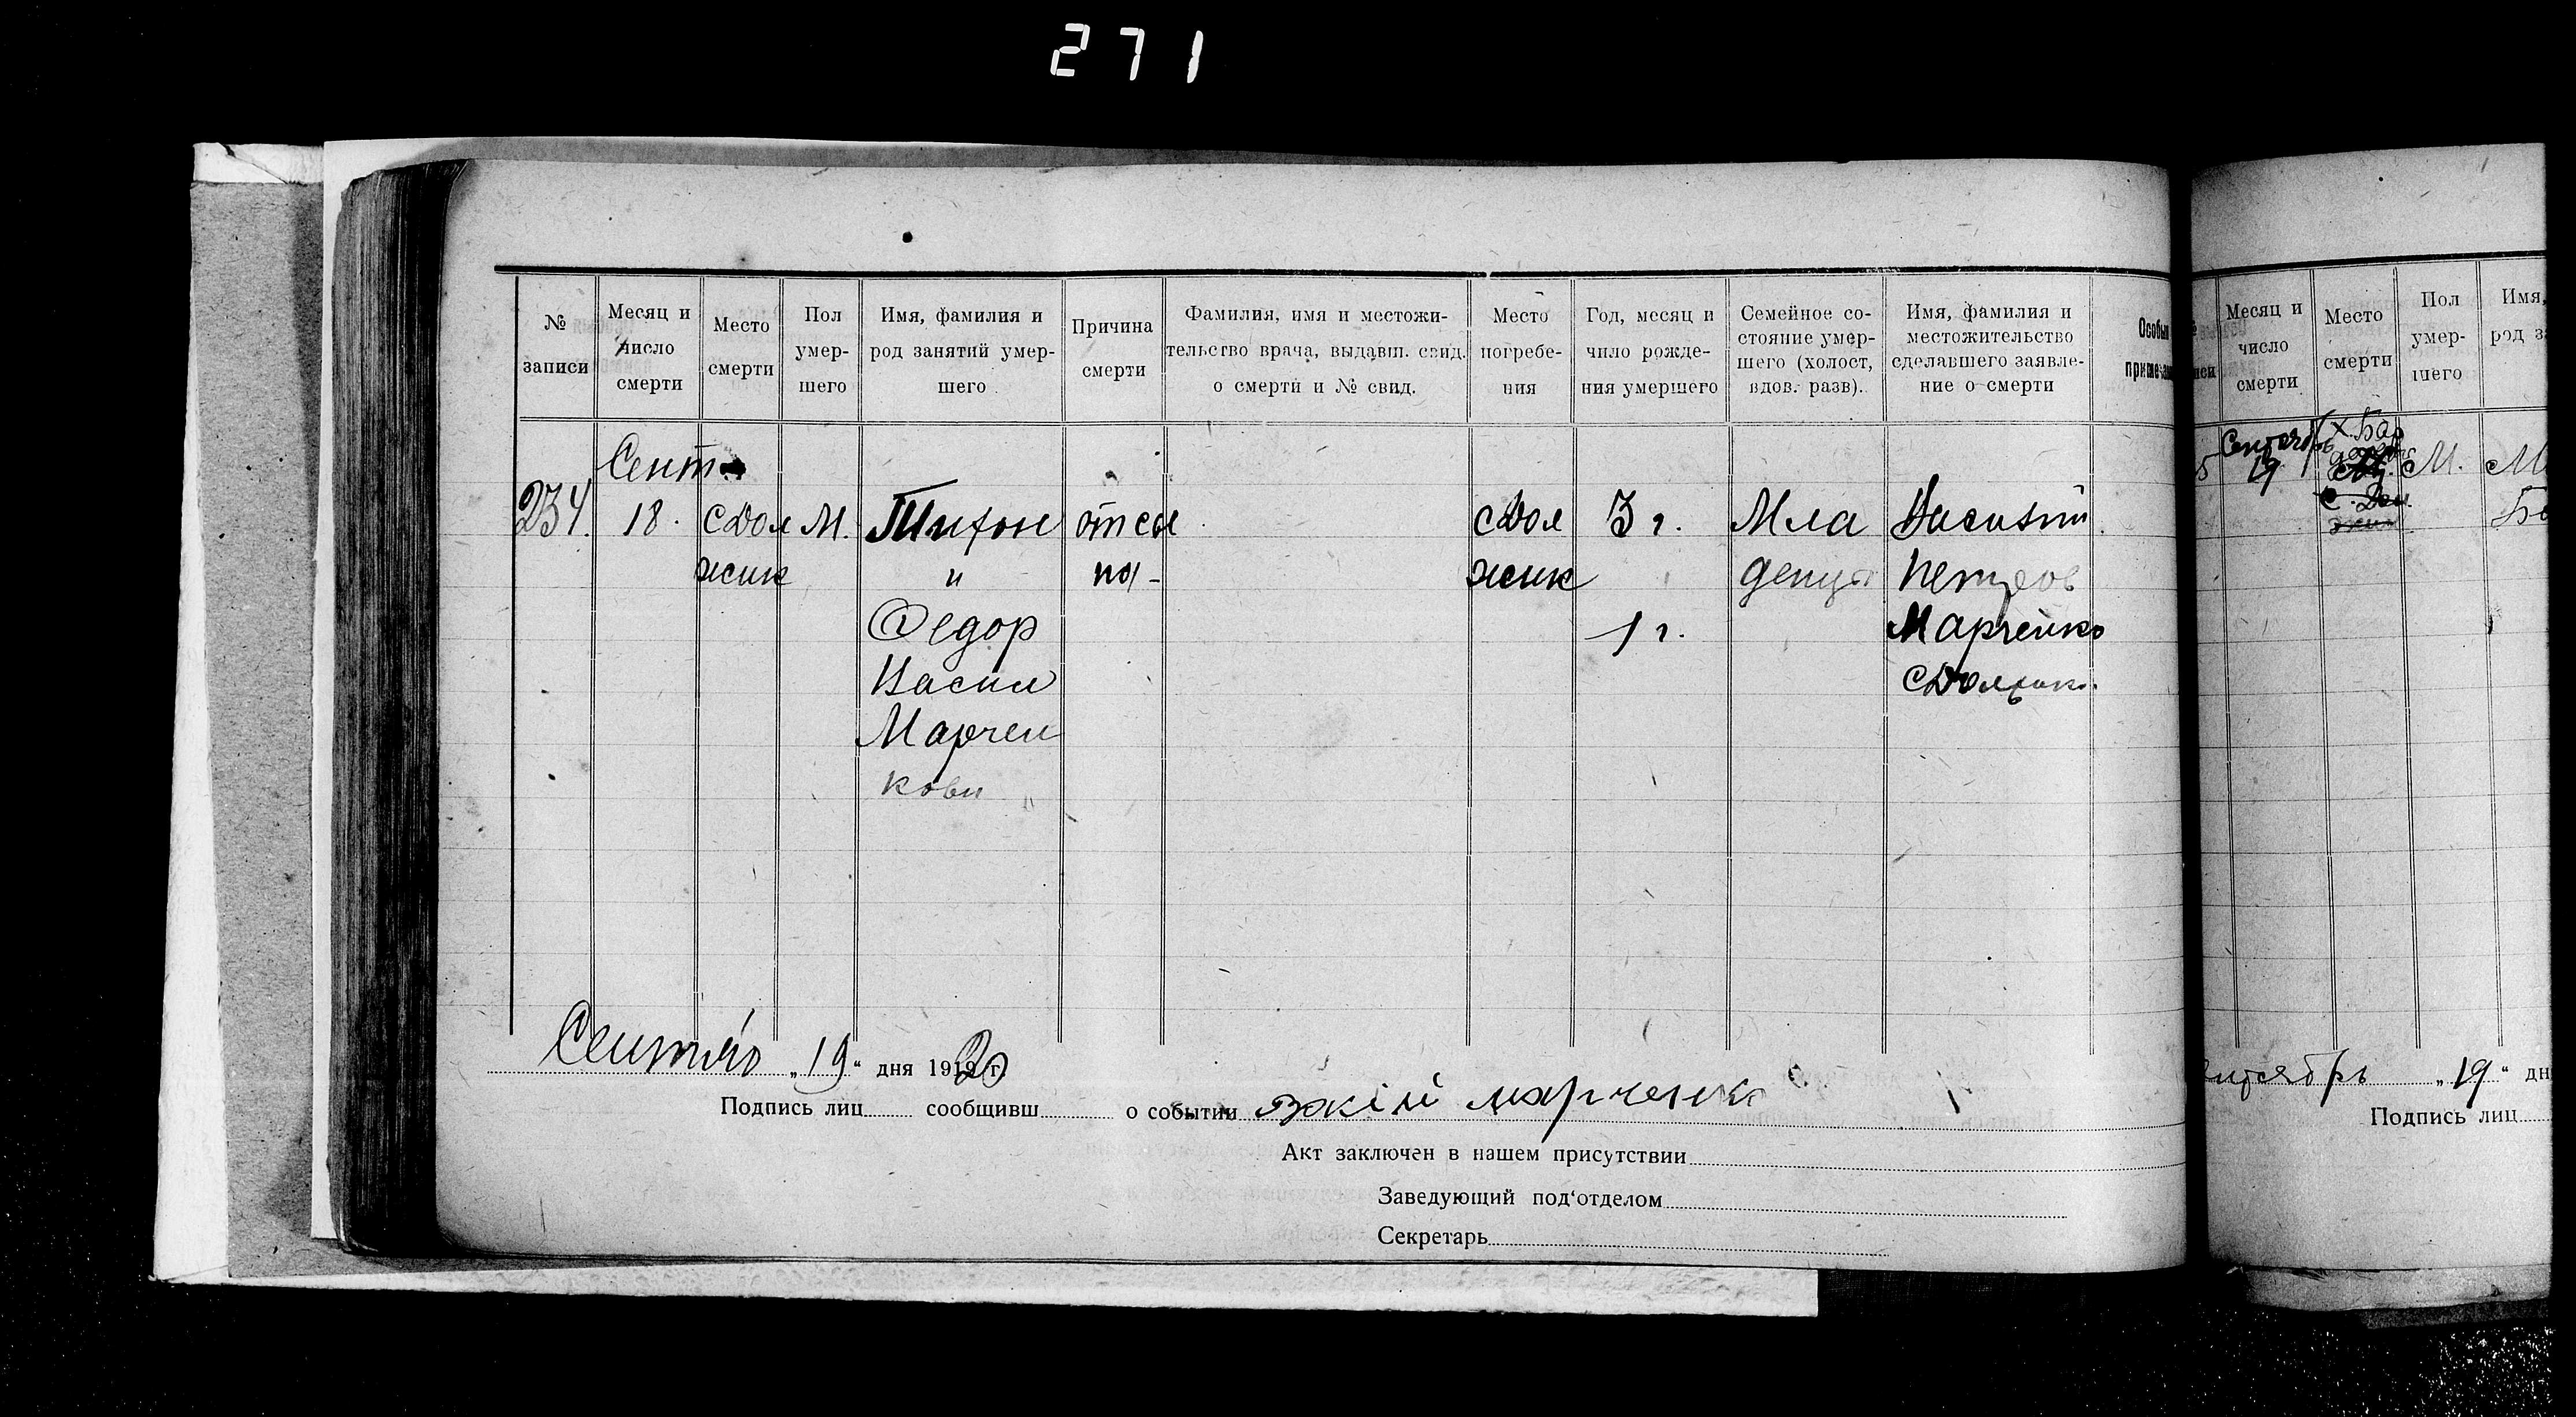 271
№ записи
Месяц и число смерти
Место смерти
Пол умер-шего
Имя, фамилия и род занятий умер-шего
Причина смерти
Фамилия, имя и местожи-тельство врача, выдавш. свид. о смерти и № свид.
Место погребе-ния
Год, месяц и число рожде-ния умершего
Семейное со-стояние умер-шего (холост, вдов. разв).
Имя, фамилия и местожительство сделавшего заявле-ние о смерти
Особы
Сент
234. 18. с Дол М. Тихон от сы с Дол 3 г. Мла Василий
жик и па- жик денцы Петров
Федор 1 г. Марченко
Васил с Должик.
Марчен
кови
Сентяб „19“ дня 1920 г.
Подпись лиц сообщивш о событии марченко
Акт заключен в нашем присутствии
Заведующий под'отделом
Секретарь
Месяц и число смерти
Место смерти
Пол умер-шего
Имя,
род за
Сентябрь х. Бар
19 М.
„19“ дн
Подпись лиц